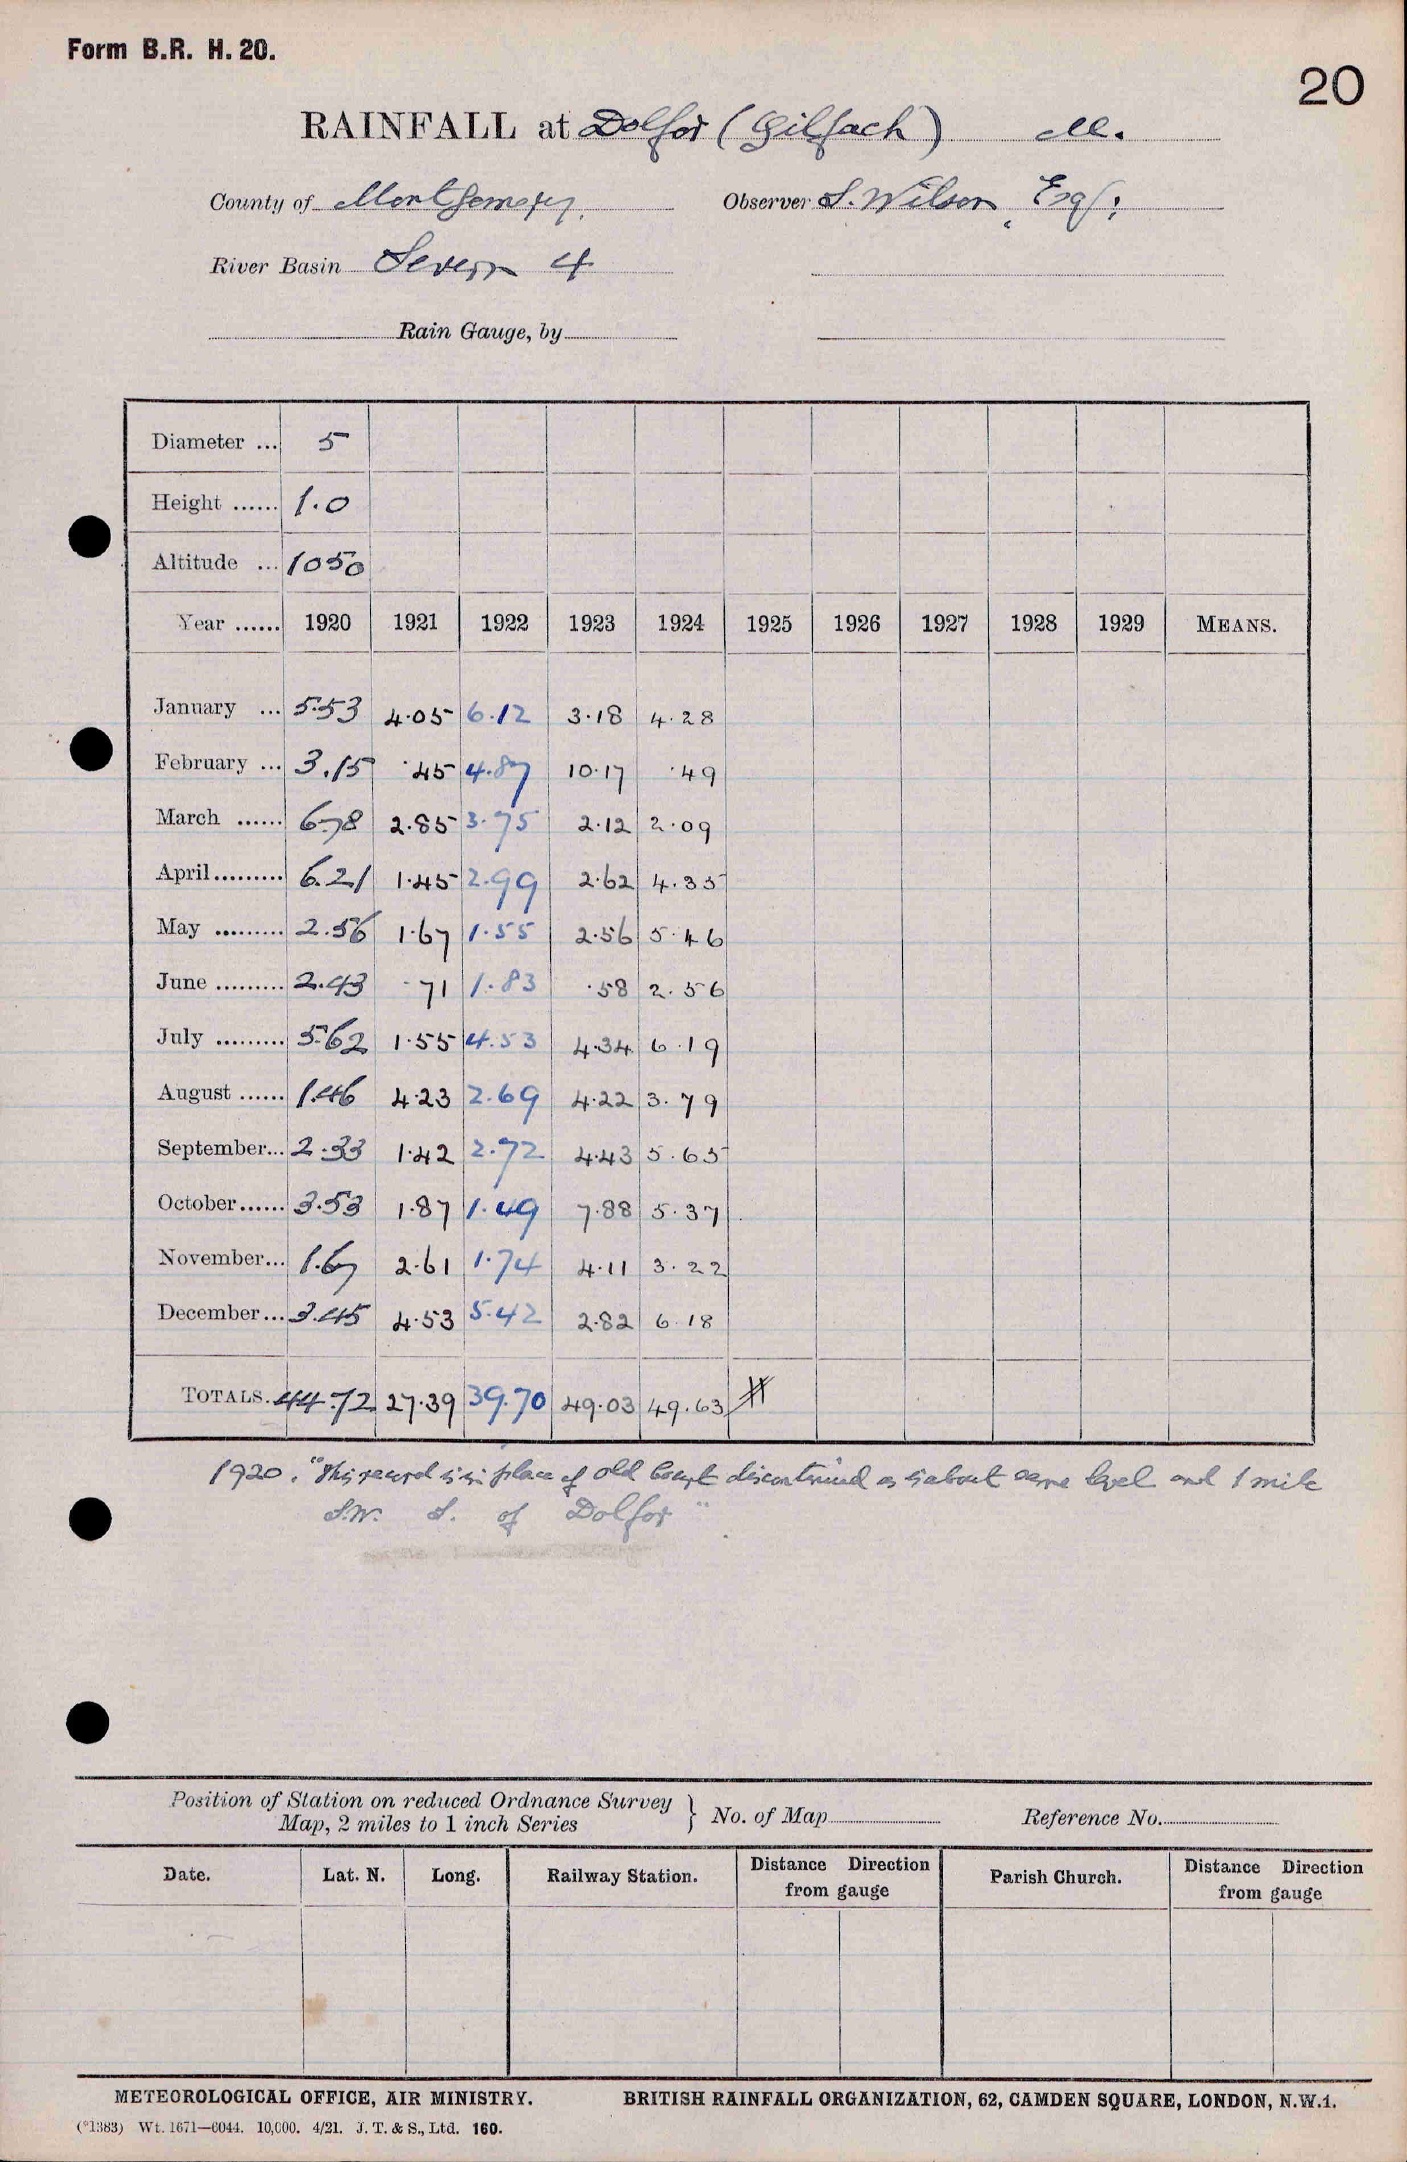 Form B.R. H. 20.
20
RAINFALL at Dolfor (Gilfach) M.
County of Montgomery. Observer S. Wilson, Esq;
River Basin Severn 4
Rain Gauge, by
Diameter ... 5
Height ...... 1.0
Altitude ... 1050
Year ...... 1920 1921 1922 1923 1924 1925 1926 1927 1928 1929 MEANS.
January ... 5.53 4.05 6.12 3.18 4.28
February ... 3.15 .45 4.87 10.17 .49
March ...... 6.78 2.85 3.75 2.12 2.09
April ......... 6.21 1.45 2.99 2.62 4.35
May ......... 2.56 1.67 1.55 2.56 5.46
June ......... 2.43 .71 1.83 .58 2.56
July ......... 5.62 1.55 4.53 4.34 6.19
August ...... 1.46 4.23 2.69 4.22 3.79
September... 2.33 1.42 2.72 4.43 5.65
October...... 3.53 1.87 1.49 7.88 5.37
November... 1.67 2.61 1.74 4.11 3.22
December... 3.45 4.53 5.42 2.82 6.18
TOTALS. 44.72 27.39 39.70 49.03 49.63
1920. "This record is in place of old discontinued as is about same level and 1 mile
S.W. S. of Dolfor"
Position of Station on reduced Ordnance Survey
Map, 2 miles to 1 inch Series } No. of Map Reference No.
Date. Lat. N. Long. Railway Station. Distance Direction from gauge Parish Church. Distance Direction from gauge
METEOROLOGICAL OFFICE, AIR MINISTRY. BRITISH RAINFALL ORGANIZATION, 62, CAMDEN SQUARE, LONDON, N.W.1.
(*1383) Wt. 1671—6044. 10,000. 4/21. J. T. & S., Ltd. 160.